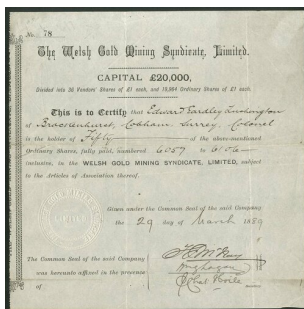 No. 78
The Welsh Gold Mining Syndicate, Limited.
CAPITAL £20,000,
Divided into 36 Founders' Shares of £1 each, and 19,964 Ordinary Shares of £1 each.
This is to Certify that Edward Eardley Lushington
of Brackenhurst, Cobham, Surrey, Colonel
is the holder of Fifty of the above-mentioned
Ordinary Shares, fully paid, numbered 6057 to 6106
inclusive, in the WELSH GOLD MINING SYNDICATE, LIMITED, subject
to the Articles of Association thereof.
Given under the Common Seal of the said Company
the 29 day of March 1889
The Common Seal of the said Company
was hereunto affixed in the presence
of